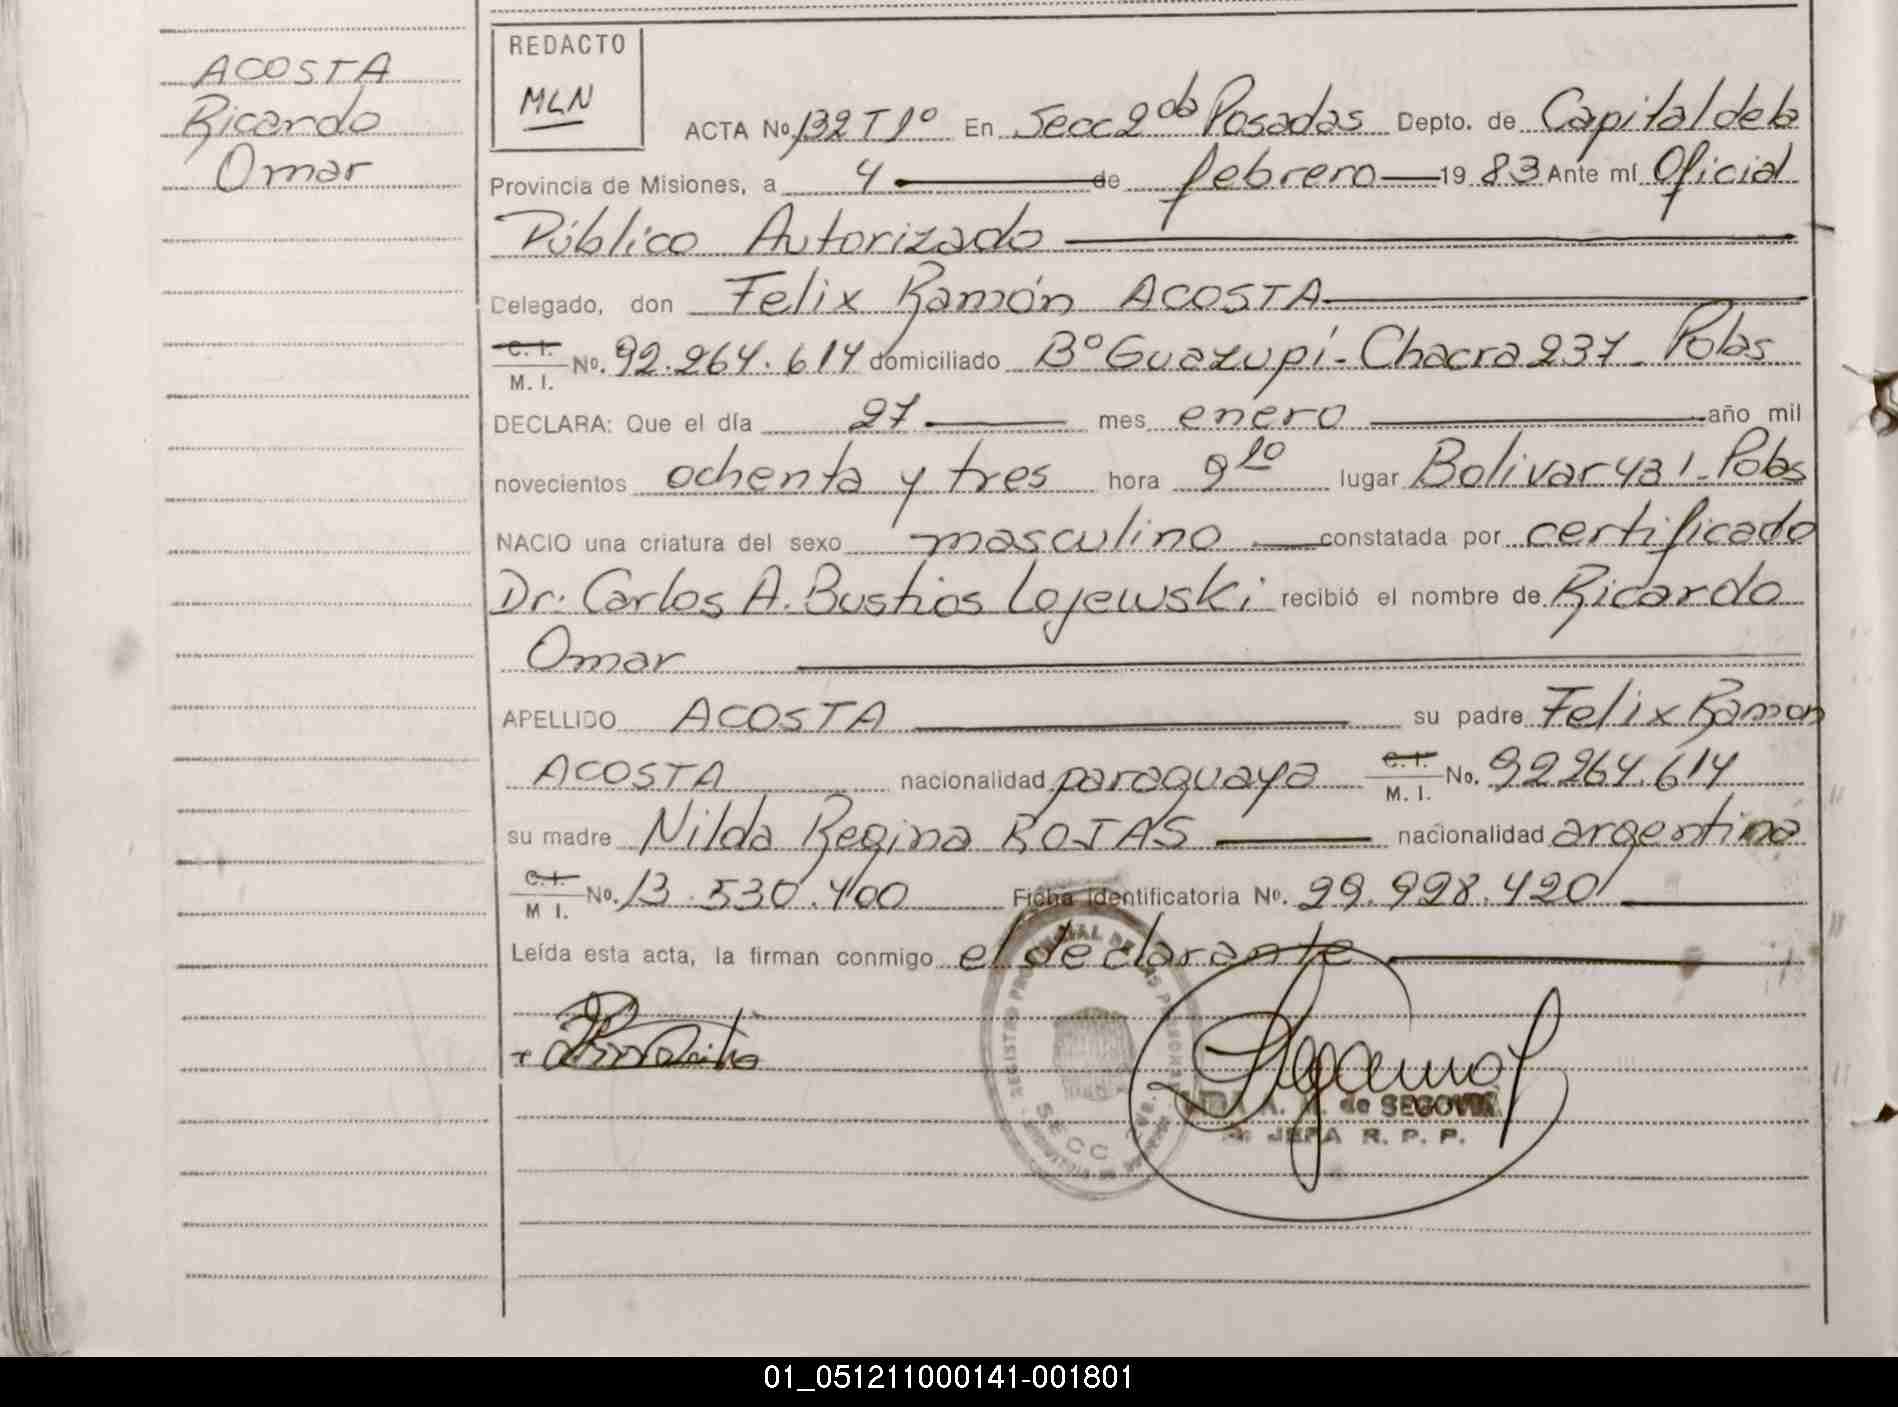 ACOSTA
Ricardo
Omar
REDACTO
MLN
ACTA No. 132 T 1º En Secc 2da Posadas Depto. de Capital de la
Provincia de Misiones, a 4 de febrero 19 83 Ante mí Oficial
Público Autorizado
Delegado, don Felix Ramón ACOSTA
C. I.
M. I. No. 92.264.614 domiciliado Bº Guazupi - Chacra 237 - Pdas
DECLARA: Que el día 27 mes enero año mil
novecientos ochenta y tres hora 9 10 lugar Bolivar 431 - Pdas
NACIO una criatura del sexo masculino constatada por certificado
Dr. Carlos A. Bustios Lojewski recibió el nombre de Ricardo
Omar
APELLIDO ACOSTA su padre Felix Ramon
ACOSTA nacionalidad paraguaya C. I.
M. I. No. 92264.614
su madre Nilda Regina ROJAS nacionalidad argentina
C. I.
M I. No. 13.530.400 Ficha Identificatoria No. 29.928.420
Leída esta acta, la firman conmigo el declarante
REGISTRO PROVINCIAL DE LAS PERSONAS
SECC
de SEGOVIA
JEFA R. P. P.
01_051211000141-001801